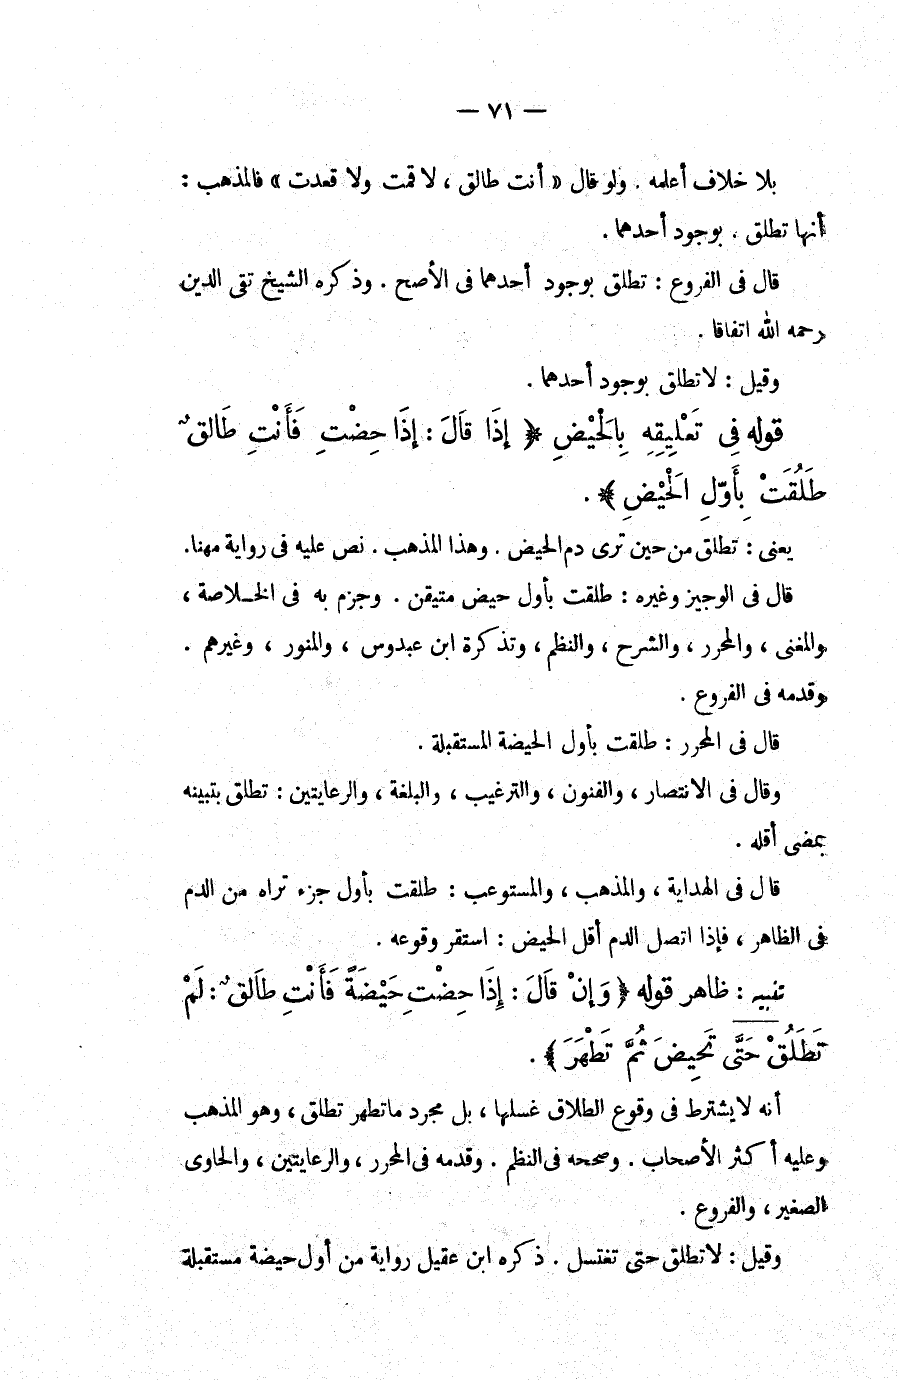 — ٧١ —
بلا خلاف أعلمه . ولو قال « أنت طالق ، لا قمت ولا قعدت » فالمذهب :
أنها تطلق . بوجود أحدهما .
قال فى الفروع : تطلق بوجود أحدهما فى الأصح . وذكره الشيخ تقى الدين
رحمه الله اتفاقا .
وقيل : لا تطلق بوجود أحدهما .
قوله فِى تَعْلِيقِهِ بِالْحَيْضِ ﴿ إِذَا قَالَ : إِذَا حِضْتِ فَأَنْتِ طَالِقٌ
طَلُقَتْ بِأَوَّلِ الْحَيْضِ ﴾ .
يعنى : تطلق من حين ترى دم الحيض . وهذا المذهب . نص عليه فى رواية مهنا .
قال فى الوجيز وغيره : طلقت بأول حيض متيقن . وجزم به فى الخـلاصة ،
والمغنى ، والمحرر ، والشرح ، والنظم ، وتذكرة ابن عبدوس ، والمنور ، وغيرهم .
وقدمه فى الفروع .
قال فى المحرر : طلقت بأول الحيضة المستقبلة .
وقال فى الانتصار ، والفنون ، والترغيب ، والبلغة ، والرعايتين : تطلق بتبينه
بمضى أقله .
قال فى الهداية ، والمذهب ، والمستوعب : طلقت بأول جزء تراه من الدم
فى الظاهر ، فإذا اتصل الدم أقل الحيض : استقر وقوعه .
تنبيه : ظاهر قوله ﴿ وَإِنْ قَالَ : إِذَا حِضْتِ حَيْضَةً فَأَنْتِ طَالِقٌ : لَمْ
تَطْلُقْ حَتَّى تَحِيضَ ثُمَّ تَطْهُرَ ﴾ .
أنه لا يشترط فى وقوع الطلاق غسلها ، بل مجرد ما تطهر تطلق ، وهو المذهب
وعليه أكثر الأصحاب . وصححه فى النظم . وقدمه فى المحرر ، والرعايتين ، والحاوى
الصغير ، والفروع .
وقيل : لا تطلق حتى تغتسل . ذكره ابن عقيل رواية من أول حيضة مستقبلة